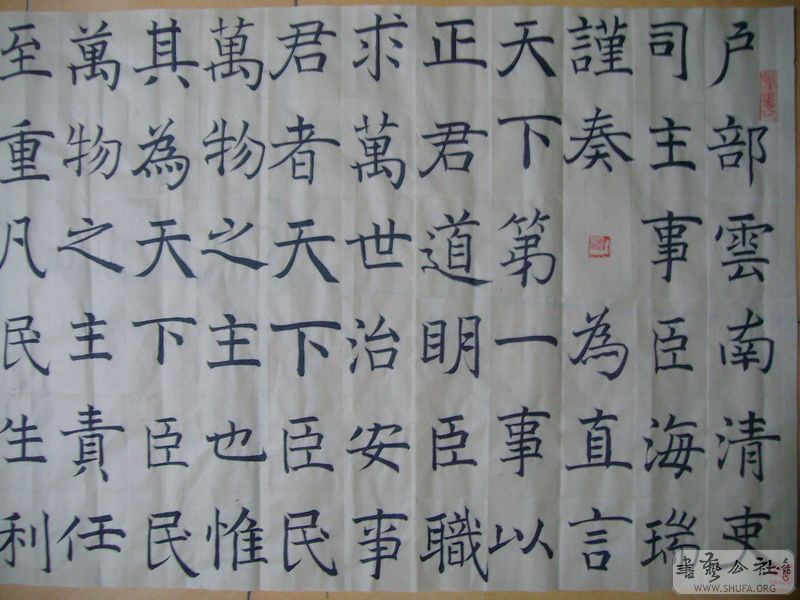 户部雲南清吏
司主事臣海瑞
謹奏 為直言
天下第一事以
正君道明臣職
求萬世治安事
君者天下臣民
萬物之主也惟
其為天下臣民
萬物之主責任
至重凡民生利
書藝公社
WWW.SHUFA.ORG